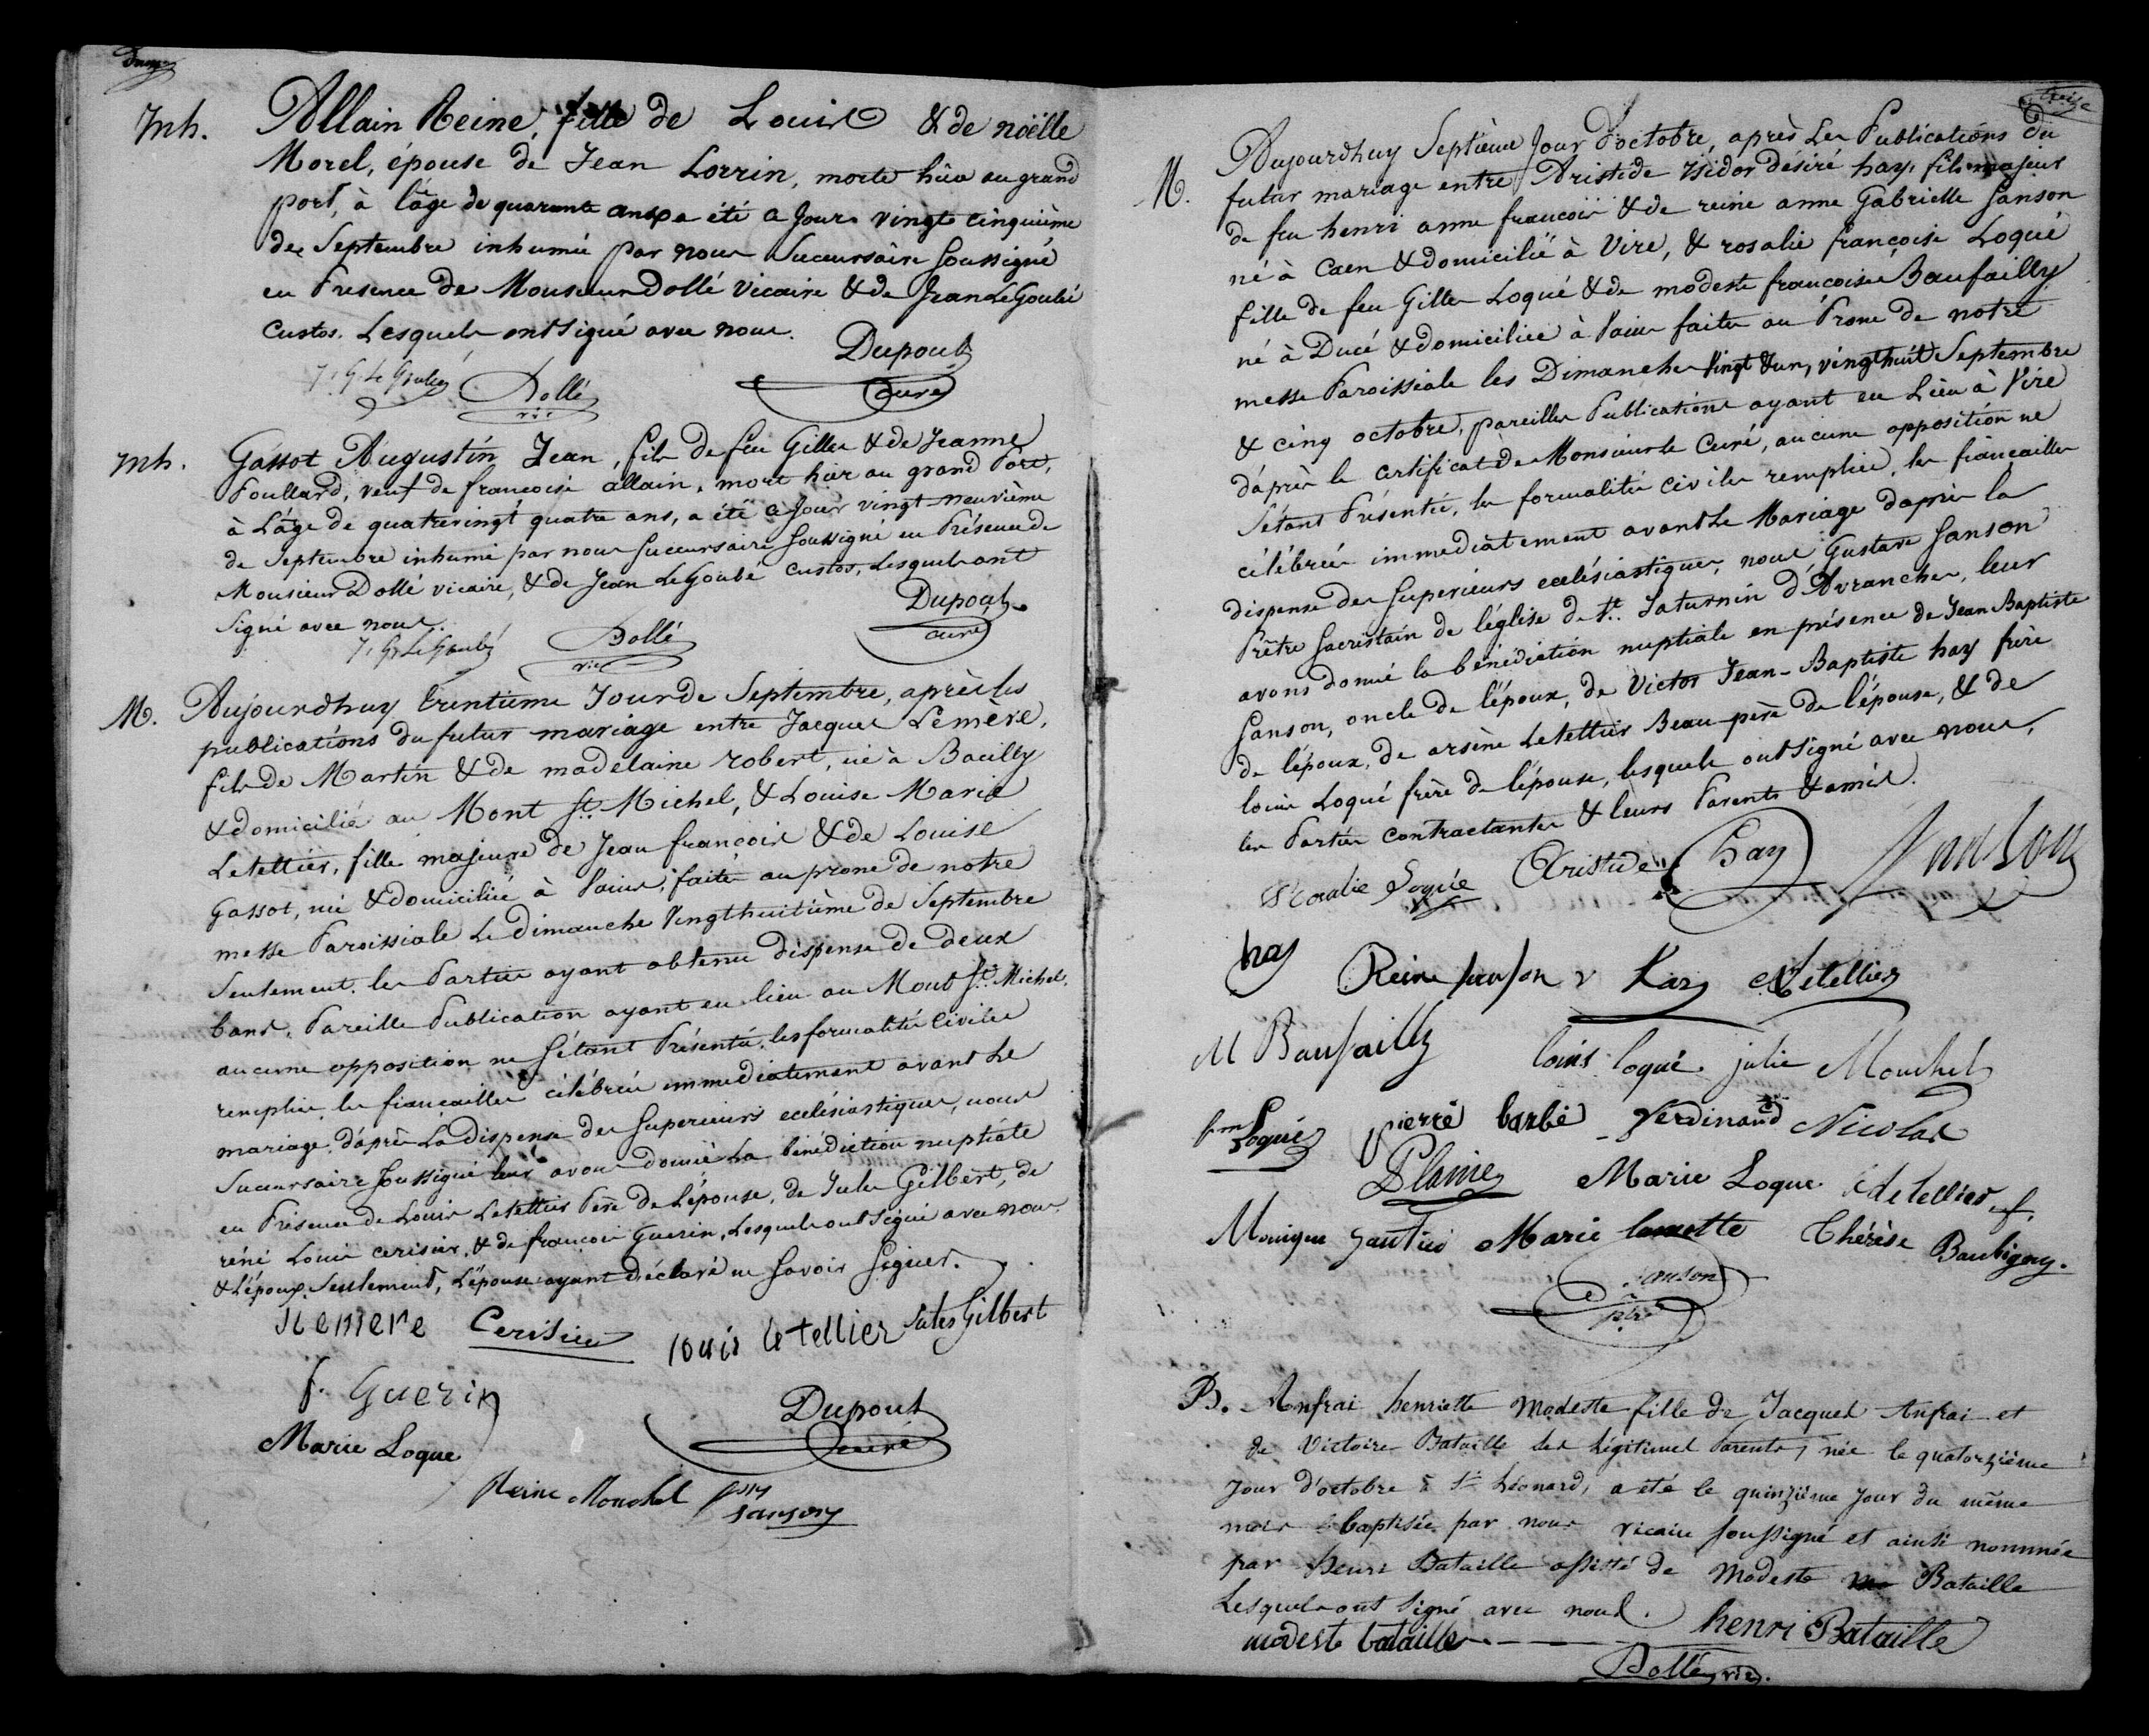 Inh. Allain Reine, fille de Louis & de noëlle
Morel, épouse de Jean Lorrin, morte hier au grand
port, à l'âge de quarante ans a été ce Jour vingt cinquième
de Septembre inhumée par nous Succursaire Soussigné
en Présence de Monsieur Dollé vicaire & de Jean Le Goubé
Custos. Lesquels ont signé avec nous.
Dupont
J. G. Le Goubé Dollé curé
vic
Inh. Gassot Augustin Jean, fils de feu Gilles & de Jeanne
Poullard, veuf de françoise allain, mort hier au grand Port,
à L'âge de quatrevingt quatre ans, a été ce Jour vingt-neuvième
de Septembre inhumé par nous Succursaire Soussigné en Présence de
Monsieur Dollé vicaire, & de Jean Le Goubé Custos, Lesquels ont
Signé avec nous.
Dupont
J. G. Le Goubé Dollé curé
vic
M. Aujourdhuy trentième Jour de Septembre, après les
publications du futur mariage entre Jacques Lemère,
fils de Martin & de madelaine robert, né à Bacilly
& domicilié au Mont St. Michel, & Louise Marie
Letellier, fille majeure de Jean françois & de Louise
Gassot, née & domiciliée à Vains, faite au prone de notre
messe Paroissiale Le Dimanche Vingthuitième de Septembre
Seulement, les Parties ayant obtenu dispense de deux
bans, Pareille Publication ayant eu lieu au Mont St. Michel,
aucune opposition ne s'étant Présentée, les formalités Civiles
remplies, les fiançailles célébrées immediatement avant Le
mariage, d'après La Dispense des Superieurs ecclésiastiques, nous
Succursaire Soussigné leur avons donné La bénédiction nuptiale
en Présence de Louis Letellier Père de L'épouse, de Jules Gilbert, de
réné Louis cerisier, & de françois Guerin, Lesquels ont Signé avec nous
& L'époux Seulement, L'épouse ayant Déclaré ne Savoir Signer.
Lemere Cerisier louis letellier Jules Gilbert
f. Guerin
Dupont
curé
Marie Loque
Reine Mouchel
Sanson
treize
M. Aujourdhuy Septième Jour d'octobre, après Les Publications du
futur mariage entre Aristide isidor désiré hay, fils majeur
de feu henri anne françois & de reine anne Gabrielle Sanson
né à Caen & domicilié à Vire, & rosalie françoise Loqué
fille de feu Gilles Loqué & de modeste françoise Baufailly
né à Ducé & domiciliée à Vains faites au Prone de notre
messe Paroissiale les Dimanches Vingt & un, vingthuit Septembre
& cinq octobre, pareilles Publications ayant eu Lieu à Vire
d'après le certificat de Monsieur le Curé, aucune opposition ne
s'étant Présentée, les formalités civiles remplies, les fiançailles
célébrées immediatement avant Le Mariage d'après la
dispense des Superieurs ecclésiastiques, nous Gustave Sanson
Prêtre Sacristain de l'église de St. Saturnin d'Avranches, leur
avons donné la bénédiction nuptiale en présence de Jean Baptiste
Sanson, oncle de l'époux, de Victor Jean-Baptiste hay frère
de l'époux, de arsène Letellier Beau-père de l'épouse, & de
louis Loqué frère de l'épouse, lesquels ont signé avec nous,
les Parties contractantes & leurs Parents & amis.
Rosalie Loquée Aristide Hay Sanson
hay Reine Sanson v Hay Letellier
M Baufailly louis loqué julie Mouchel
Loqué pierre barbé ferdinand Nicolas
Plaine Marie Loque Letellier f.
Monique Gautier Marie lamotte Thérèse Baubigny.
Sanson
ptre
B. Anfrai henriette Modeste fille de Jacques Anfrai et
de Victoire Bataille ses légitimes Parents, née le quatorzième
Jour d'octobre à St Léonard, a été le quinzième jour du même
mois baptisée par nous vicaire soussigné et ainsi nommée
par Henri Bataille assisté de Modeste Bataille
Lesquels ont signé avec nous.
modeste bataille henri Bataille
Dollé vic.